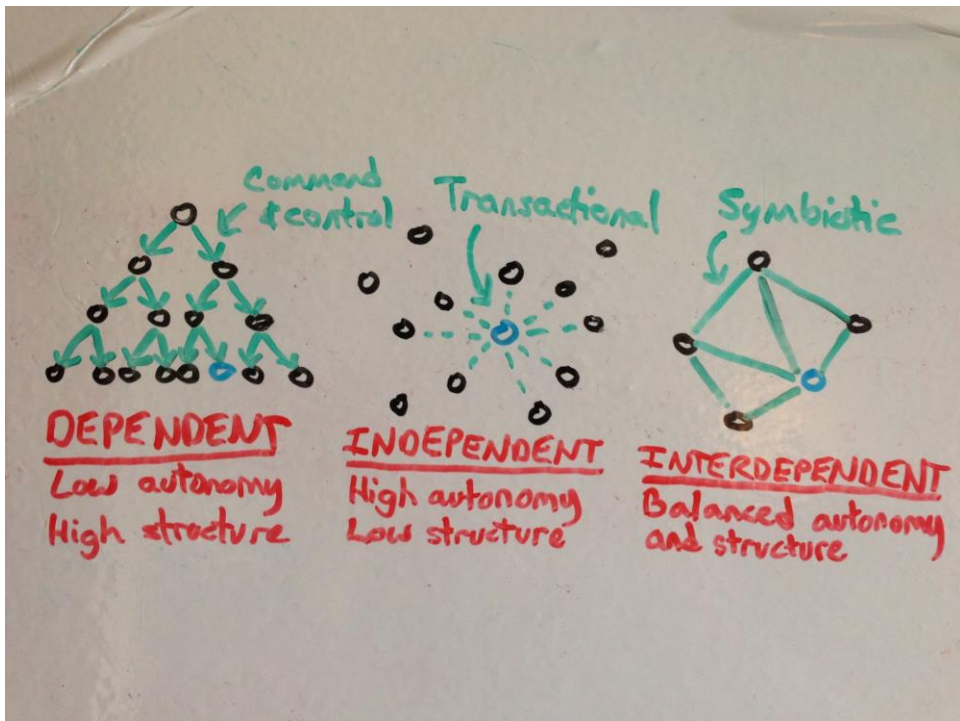 Command
& control
Transactional
Symbiotic
DEPENDENT
Low autonomy
High structure
INDEPENDENT
High autonomy
Low structure
INTERDEPENDENT
Balanced autonomy
and structure